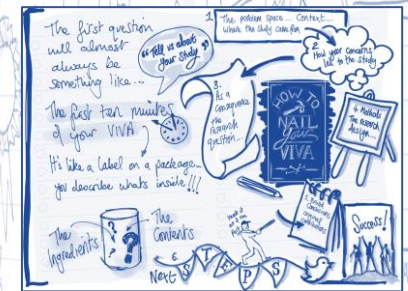 The first question
will almost
always be
something like...
"Tell us about
your study"
The first ten minutes
of your VIVA
It's like a Label on a package...
you describe whats inside!!!
The
Ingredients
The
Contents
1. The problem space... Context...
where the study came from
2.
How your concerns
led to the study
3.
As a
consequence
the
research
question...
HOW TO
NAIL
Your
VIVA
4. Methods
The research
design...
5.
Success!
6.
Next
STEPS